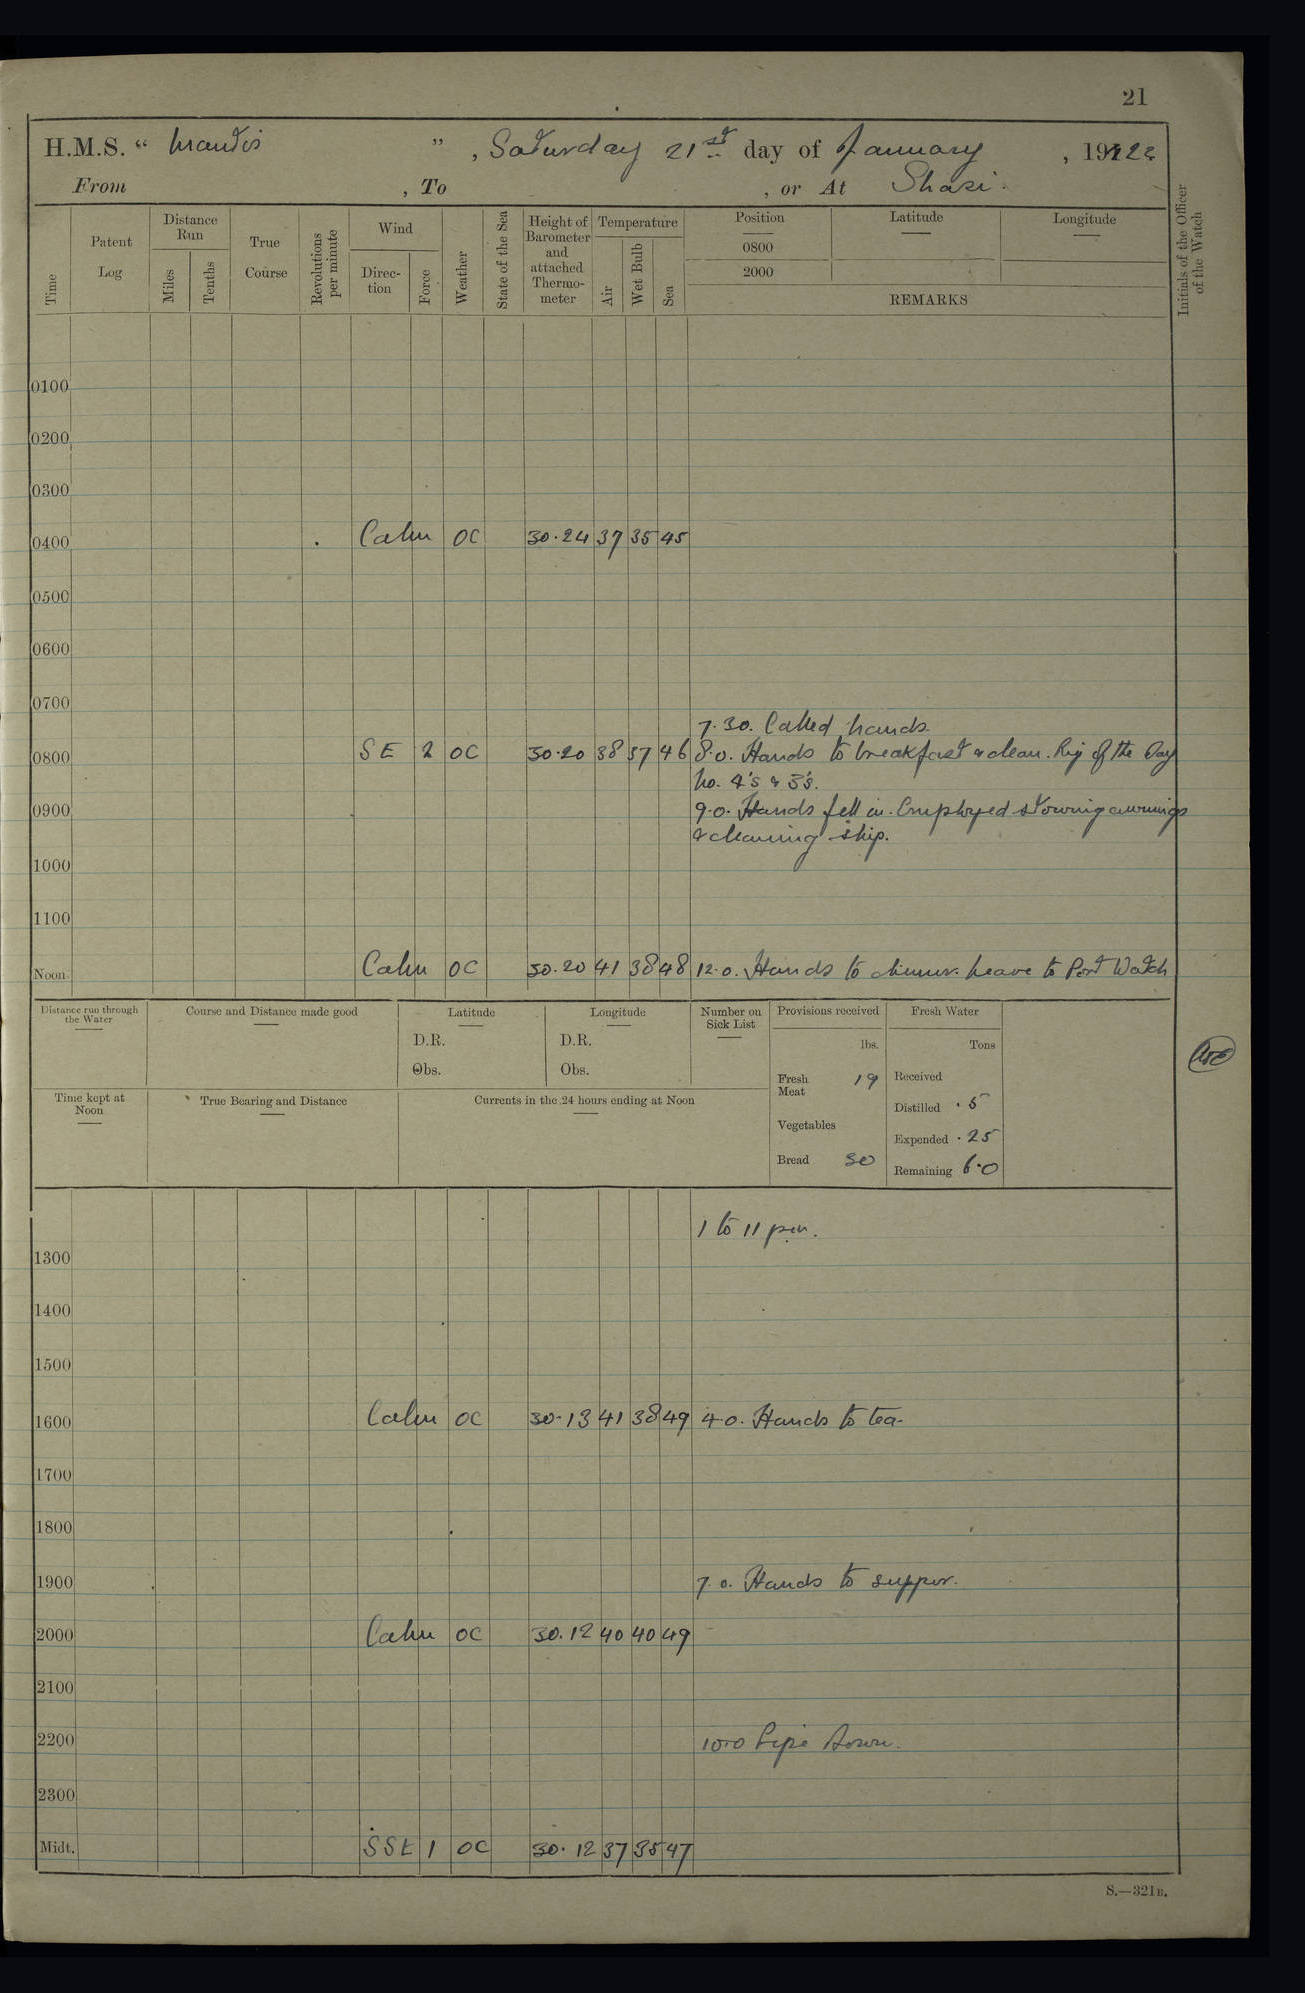 21
H.M.S. “ Mantis ” , Saturday 21st day of January , 1922
From , To , or At Shasi.
Time
Patent Log
Distance Run
Miles
Tenths
True Course
Revolutions per minute
Wind
Direction
Force
Weather
State of the Sea
Height of Barometer and attached Thermometer
Temperature
Air
Wet Bulb
Sea
Position
0800
2000
Latitude
Longitude
REMARKS
Initials of the Officer of the Watch
0100
0200
0300
0400 Calm OC 30.24 37 35 45
0500
0600
0700
7.30. Called hands.
0800 SE 2 OC 30.20 38 37 46 8.0. Hands to breakfast & clean. Rig of the Day
No. 4's & 3's.
0900 9.0. Hands fell in. Employed stowing awnings
& cleaning ship.
1000
1100
Noon. Calm OC 30.20 41 38 48 12.0. Hands to dinner. Leave to Port Watch
Distance run through the Water
Course and Distance made good
Latitude
D.R.
Obs.
Longitude
D.R.
Obs.
Number on Sick List
Provisions received
lbs.
Fresh Meat 19
Vegetables
Bread 30
Fresh Water
Tons
Received
Distilled .5
Expended .25
Remaining 6.0
Time kept at Noon
True Bearing and Distance
Currents in the 24 hours ending at Noon
1 to 11 pm.
1300
1400
1500
1600 Calm OC 30.13 41 38 49 4.0. Hands to tea.
1700
1800
1900 7.0. Hands to supper.
2000 Calm OC 30.12 40 40 49
2100
2200 10.0 Pipe down.
2300
Midt. SSE 1 OC 30.12 37 35 47
S.—321B.